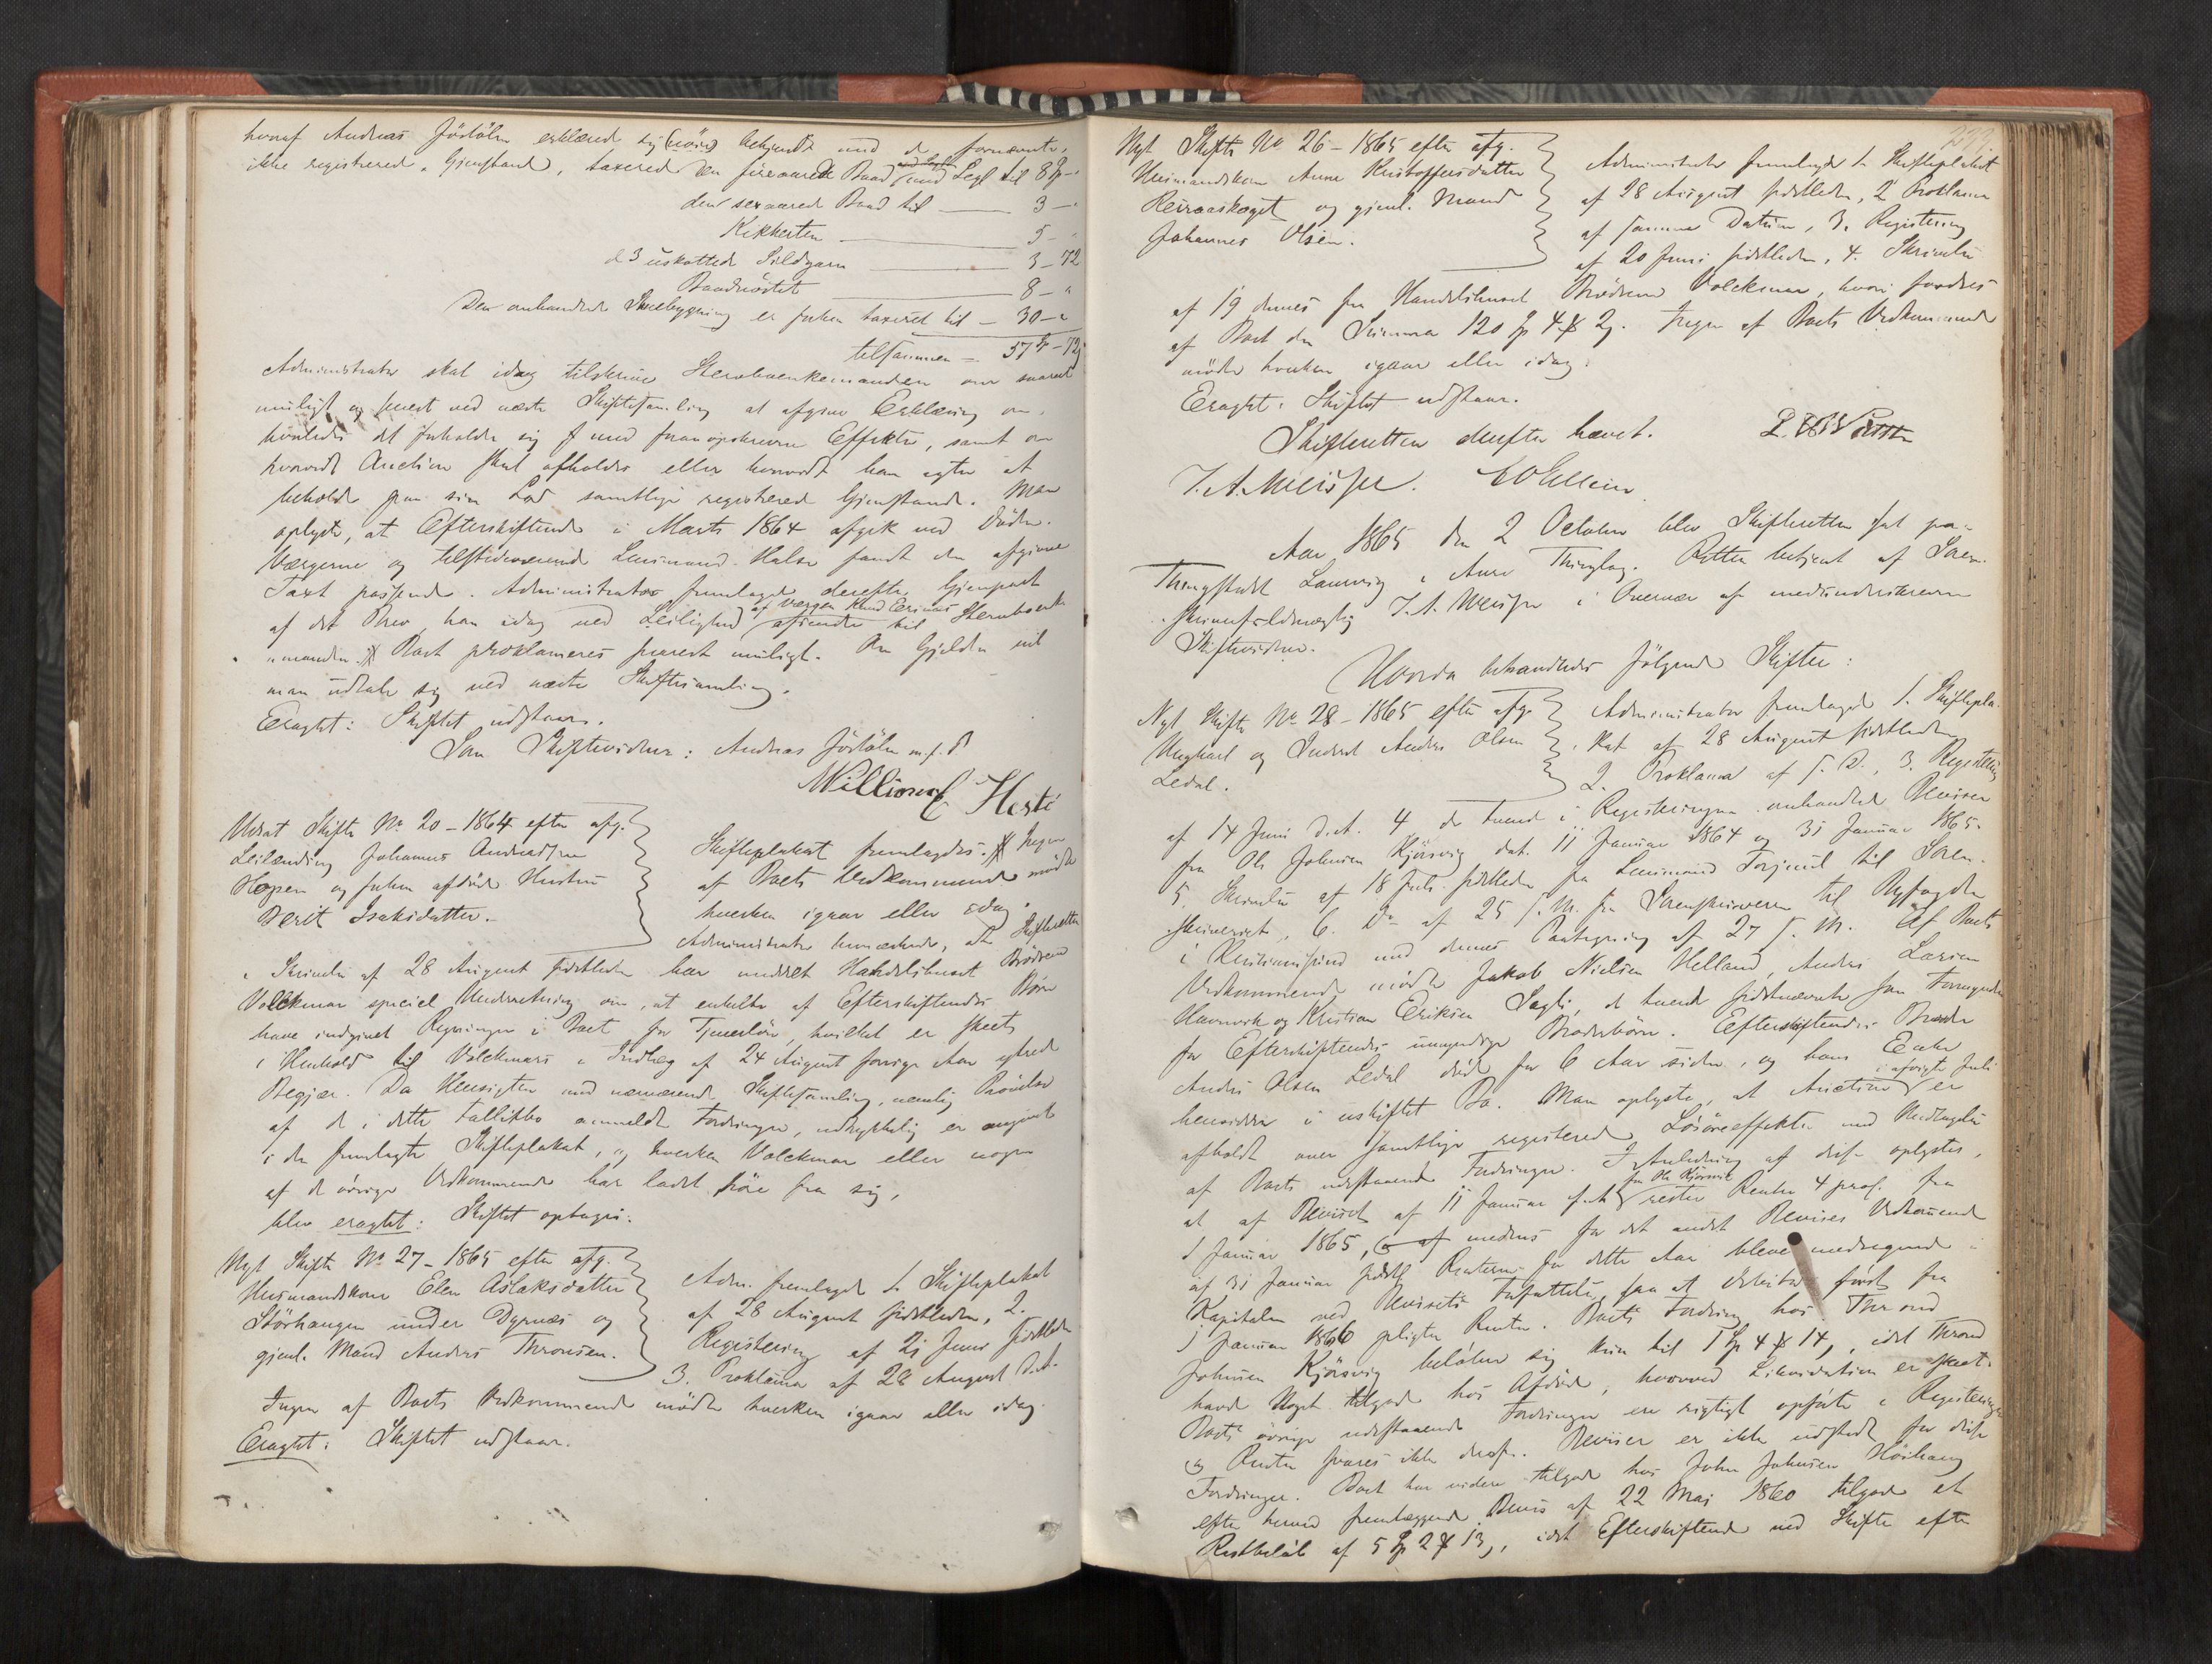 hvoraf Andreas Jörtölen erklærede sig (nöie) bekjendt med de fornævnte,
ikke registrerede Gjenstande, taxeredes den fireaarede Baad med Segl til 8 –
den sexaarede Baad til — 3 – "
Kikkerten — 5 – "
d 3 uskattede Sildgarn — 3 – 72
Baadnöstet — 8 – "
Den omhandlede Huusbygning er forhen taxeret til – 30 – "
tilsammen – 57 – 72
Administrator skal idag tilskrive Stervboenkemanden om snarest
muligt og senest ved næste Skiftesamling at afgive Erklæring om,
hvorledes det forholder sig med foranopskrevne Effekter, samt om
hvorvidt Auction skal afholdes eller hvorvidt han agter at
beholde paa sin Lod samtlige registrerede Gjenstande. Man
oplyste, at Efterskiftende i Marts 1864 afgik ved Döden.
Værgerne og tilstedeværende Lensmand Halse fandt den afgivne
Taxt passende. Administrator fremlagde derefter Gjenpart
af det Brev han idag ved Leilighed af værgen Knud Eerinus afsendte til Stervboenke
manden. Boet proklameres snarest muligt. Om Gjelden vil
man udtale sig ved næste Skiftesamling.
Eragtet: Skiftet udstaar.
Som Skiftevidner: Andreas Jörtölen m. f. P
William Hestö
Udsat Skifte No 20 – 1864 efter afg.
Leilænding Johannes Andreassen
Hopen og forhen afdöde Hustru
Berit Isaksdatter.
Skifteplakat fremlagdes. Ingen
af Boets Vedkommende mödte
hverken igaar eller idag.
Administrator bemærkede, at Skifteretten
i Skrivelse af 28 August sidstleden har meddelt Handelshuset Brödrene
Volckmar speciel Underretning om, at enkelte af Efterskiftendes Börn
have indgivet Regninger i Boet for Tjenerlön, hvilket er skeet
i Henhold til Volckmars i Indlæg af 24 August forrige Aar ytrede
Begjær. Da Hensigten med nærværende Skiftesamling, nemlig Prövelse
af de i dette Fallitbo anmeldte Fordringer, udtrykkelig er angivet
i den fremlagte Skifteplakat, og hverken Volckmar eller nogen
af de övrige Vedkommende har ladet höre fra sig,
blev eragtet: Skiftet optages.
Nyt Skifte No 27 – 1865 efter afg.
Husmandskone Elen Aslaksdatter
Störhaugen under Dyrnæs og
gjenl. Mand Anders Thronsen.
Adm. fremlagde 1. Skifteplakat
af 28 August sidstleden, 2.
Registrering af 21 Juni sidstleden
3. Proklama af 28 August d. A.
Ingen af Boets Vedkommende mödte hverken igaar eller idag.
Eragtet: Skiftet udstaar.
Nyt Skifte No 26 – 1865 efter afg.
Husmandskone Anne Kristoffersdatter
Reiraaskaget og gjenl. Mand
Johannes Olsen.
Administrator fremlagde 1. Skifteplakat
af 28 August sidstleden, 2 Proklama
af samme Datum, 3. Registrering
af 20 Juni sidstleden, 4. Skrivelse
af 19 dennes fra Handelshuset Brödrene Volckmar, hvori fordres
af Boet den Summa 120 4 2. Ingen af Boets Vedkommende
mödte hverken igaar eller idag.
Eragtet: Skiftet udstaar.
Skifteretten derefter hævet.
J. A. Meisser.
Aar 1865 den 2 October blev Skifteretten sat paa
Thingstedet Laurvig i Aure Thinglag. Retten betjent af Soren-
skriverfuldmægtig J. A. Meisser i Overvær af medunderskrevne
Skiftevidner.
Hvorda behandledes fölgende Skifter:
Nyt Skifte No 28 – 1865 efter afg.
Ungkarl og Inderst Anders Olsen
Ledal.
Administrator fremlagde 1. Skiftepla-
kat af 28 August sidstleden,
2. Proklama af s. D., 3. Registrering
af 14 Juni d. A. 4 de tvende i Registreringen omhandlede Beviser
fra Ole Johnsen Kjörsvig dat. 11 Januar 1864 og 31 Januar 1865.
5. Skrivelse af 18 Juli sidstleden fra Lensmand Forsmul til Soren-
skriveriet, 6. Do af 25 s. M. fra Sorenskriveren til Byfogden
i Kristianssund med dennes Paategning af 27 s. M. Af Boets
Vedkommende mödte Jakob Nielsen Helland, Anders Larsen
Havnvik og Kristian Eriksen Sagli, de tvende sidstnævnte som Formyndere
for Efterskiftendes umyndige Broderbörn. Efterskiftendes Broder
Anders Olsen Ledal döde for 6 Aar siden, og hans Enke
hensidder i uskiftet Bo. Man oplyste, at Auction i afvigte Juli er
afholdt over samtlige registrerede Lösöreeffekter med Undtagelse
af Boets udestaaende Fordringer. I Anledning af disse oplystes,
at af Beviset af 11 Januar f. A. fra Ole Kjörsvik restere Renter 4 proC. fra
1 Januar 1865, medens for det andet Bevises Vedkommende
af 31 Januar sidstl. Renterne for dette Aar bleve medregnede i
Kapitalen ved Bevisets Forfattelse, saa at Debitor först fra
1 Januar 1866 pligter Renter. Boets Fordring hos Thrond
Johnsen Kjörsvig belöber sig kun til 1 4 14, idet Thrond
havde Noget tilgode hos Afdöde, hvorved Likvidation er skeet.
Boets övrige udestaaende Fordringer ere rigtigt opförte i Registreringen
og Renter svares ikke deraf. Beviser er ikke udstedt for disse
Fordringer. Boet har videre tilgode hos John Johnsen Höihaug
efter herved fremlæggende Bevis af 22 Mai 1860 tilgode et
Restbelöb af 5 2 13, idet Efterskiftende ved Skifte efter